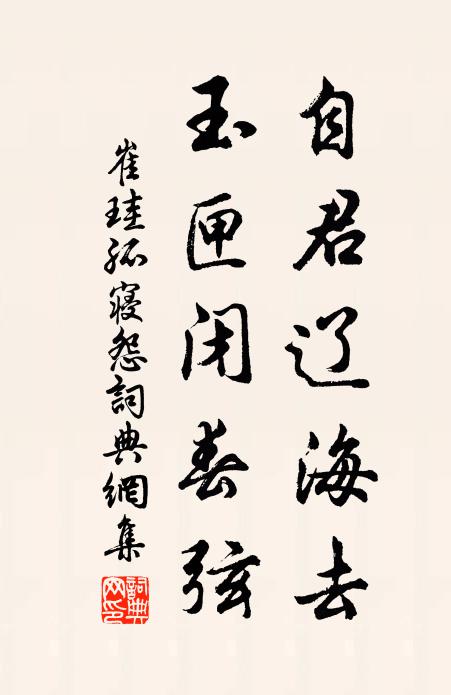 自君辽海去
玉匣闭春弦
崔珪孤寝怨詞典網集
詞典网印